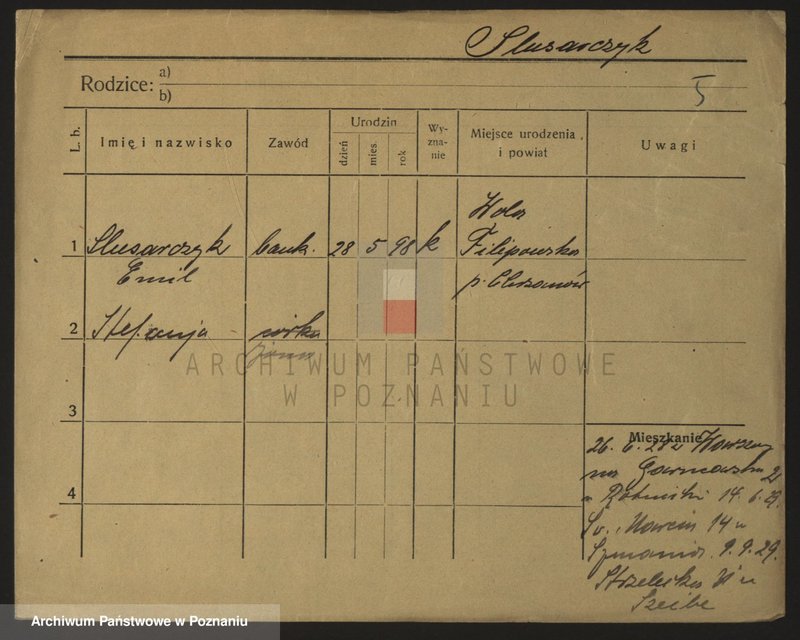 Slusarczyk
Rodzice: a)
b)
5
L. b.
Imię i nazwisko
Zawód
Urodzin
dzień
mies.
rok
Wy-
zna-
nie
Miejsce urodzenia
i powiat
Uwagi
Wola
1 Slusarczyk bank. 28 5 98 k Filipowska
Emil p. Chrzanów
2 Stefanja córka
3
Mieszkanie
26. 6. 28 z Warszawy
na
4 14. 6. 29.
Św. Marcin 14 u
9. 9. 29.
Strzelecka u
ARCHIWUM PAŃSTWOWE
W POZNANIU
Archiwum Państwowe w Poznaniu